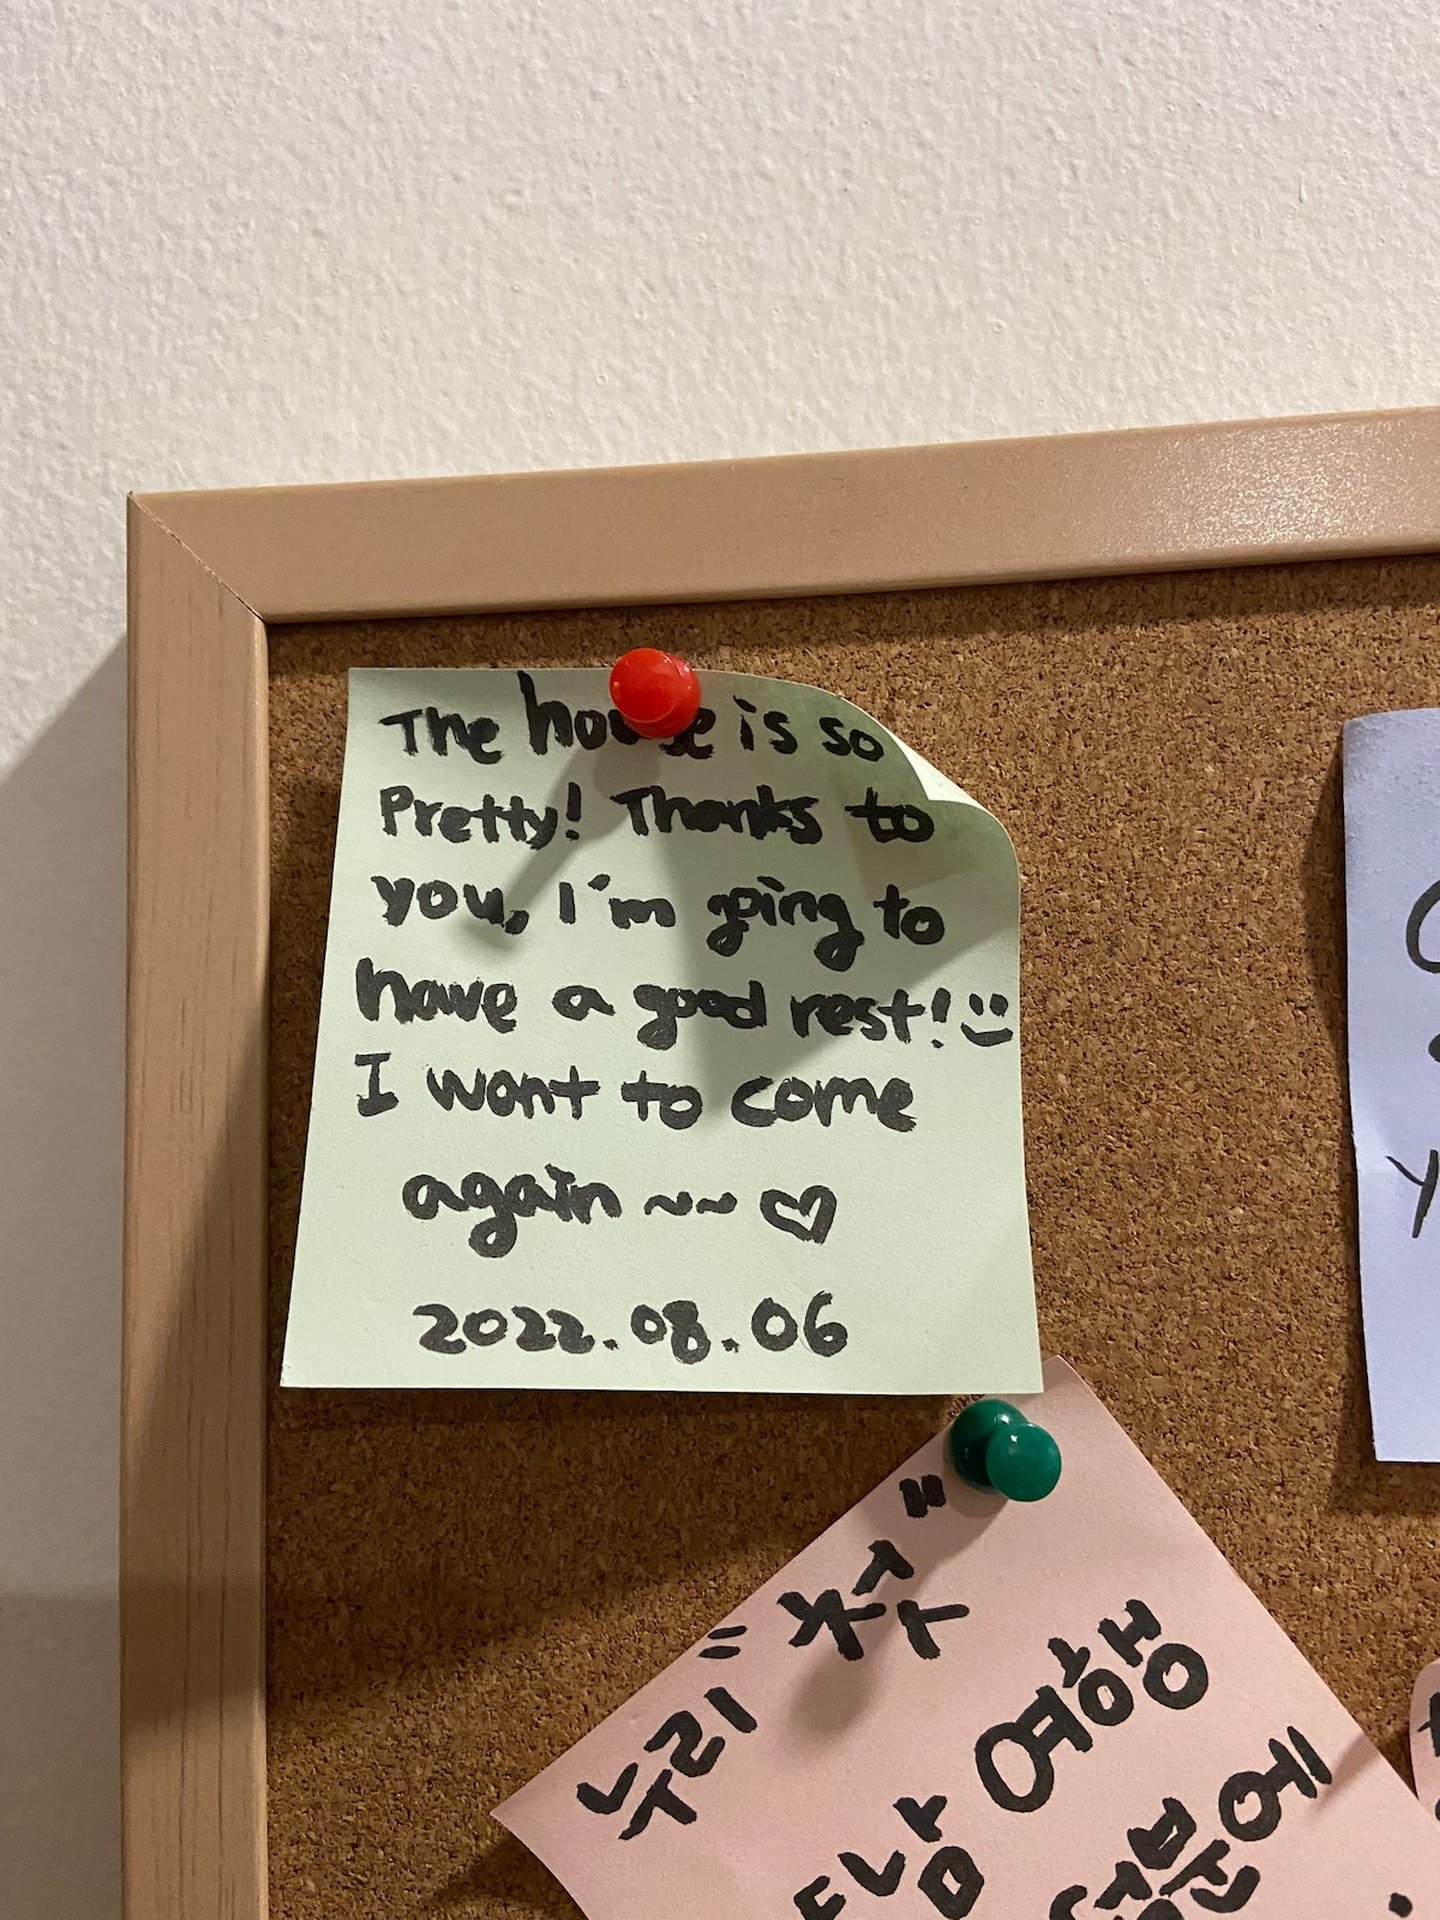 The house is so
Pretty! Thanks to
you, I'm going to
have a good rest!
I want to come
again ~~ ♡
2022.08.06
누리" 첫"
여행